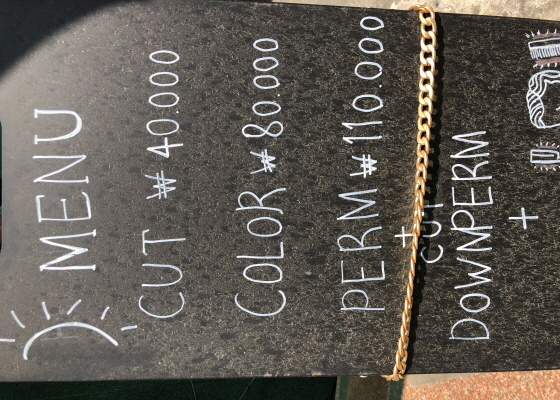 MENU
CUT ₩ 40.000
COLOR ₩ 80.000
PERM ₩ 110.000
+
CUT
DOWNPERM
+